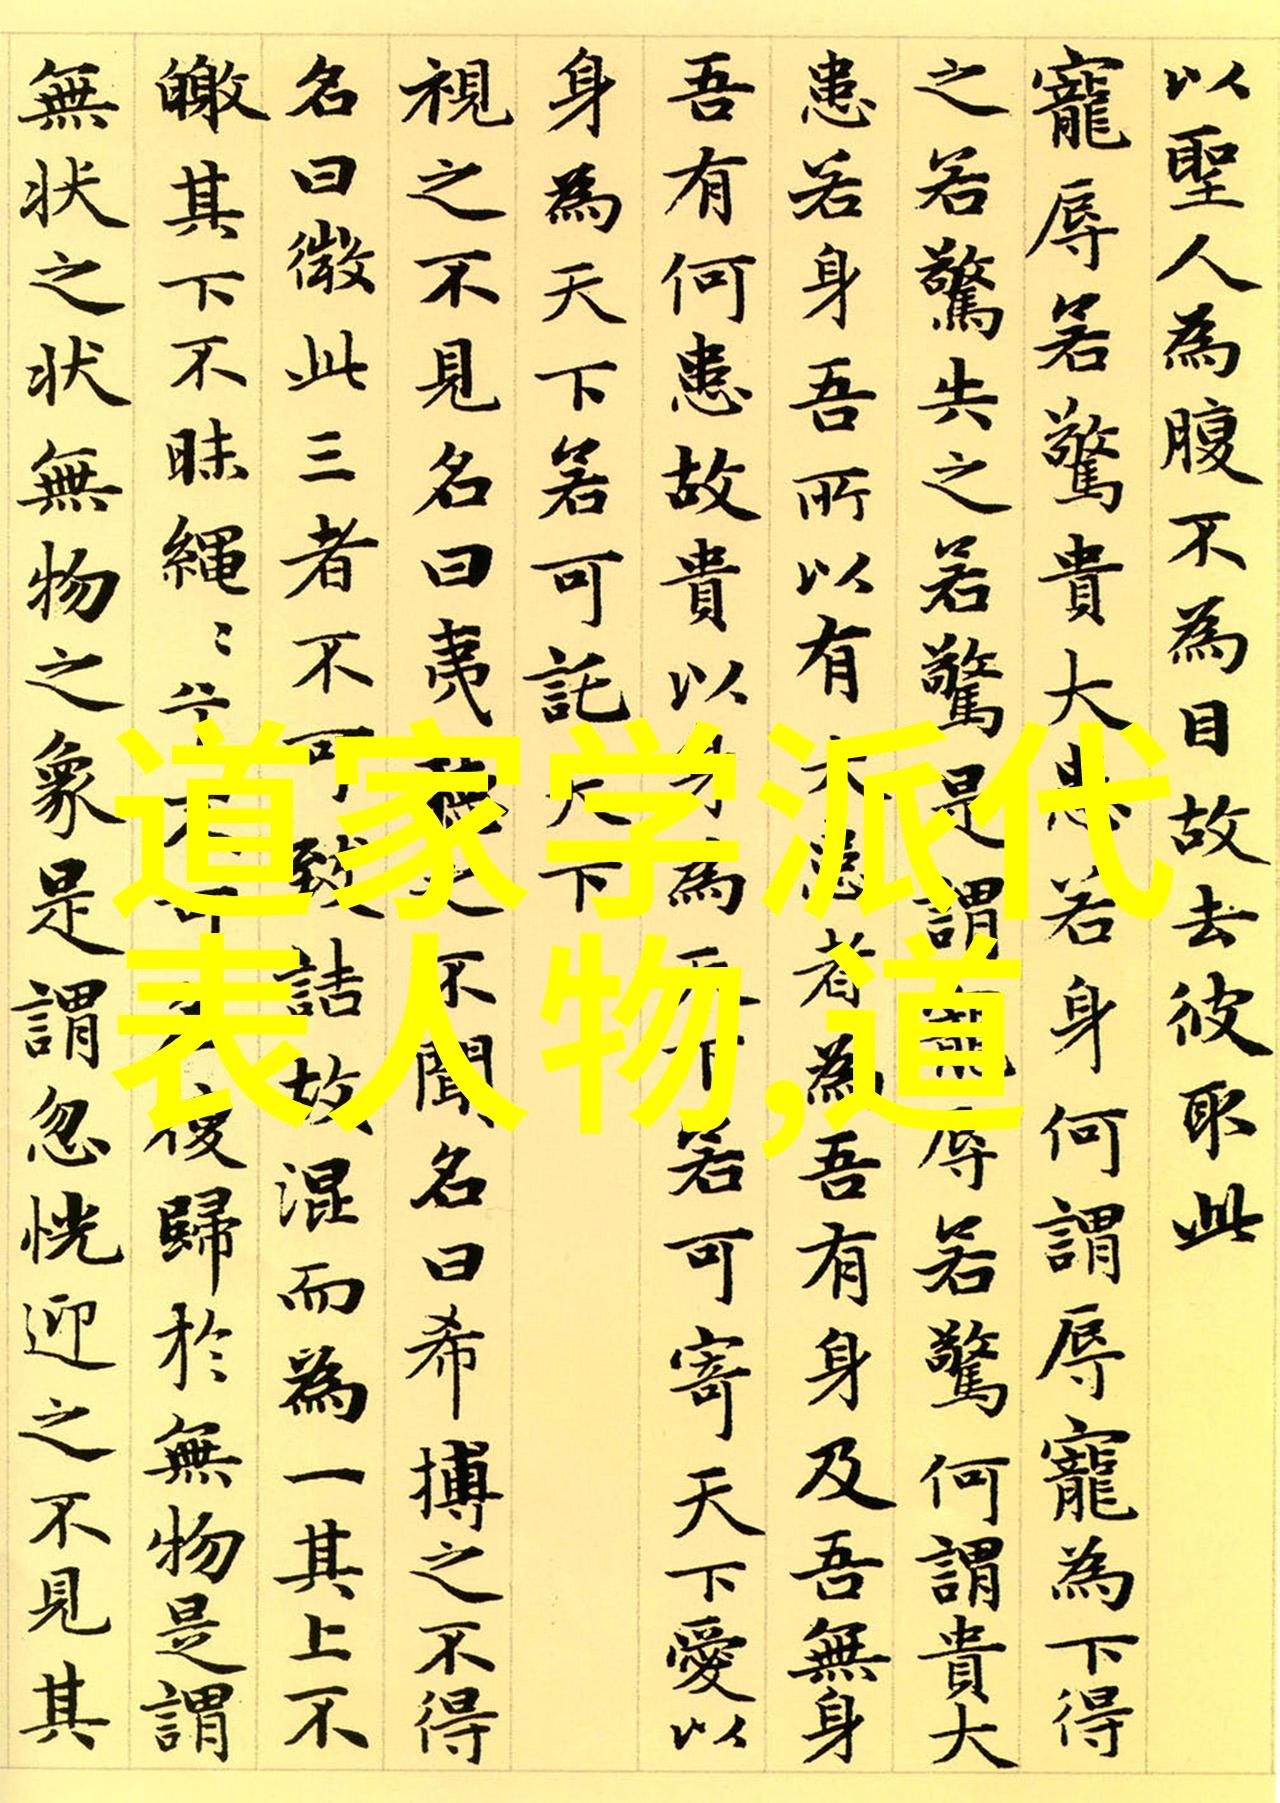 以聖人為腹不為目故去彼取此
寵辱若驚貴大患若身何謂辱寵為下得
之若驚失之若驚是謂寵辱若驚何謂貴大
患若身吾所以有大患者為吾有身及吾無身
吾有何患故貴以身為天下若可寄天下愛以
身為天下若可託天下
視之不見名曰夷聽之不聞名曰希搏之不得
名曰微此三者不可致詰故混而為一其上不
皦其下不昧繩〻兮不可名復歸於無物是謂
無状之状無物之象是謂忽恍迎之不見其
道家学派代
表人物,道